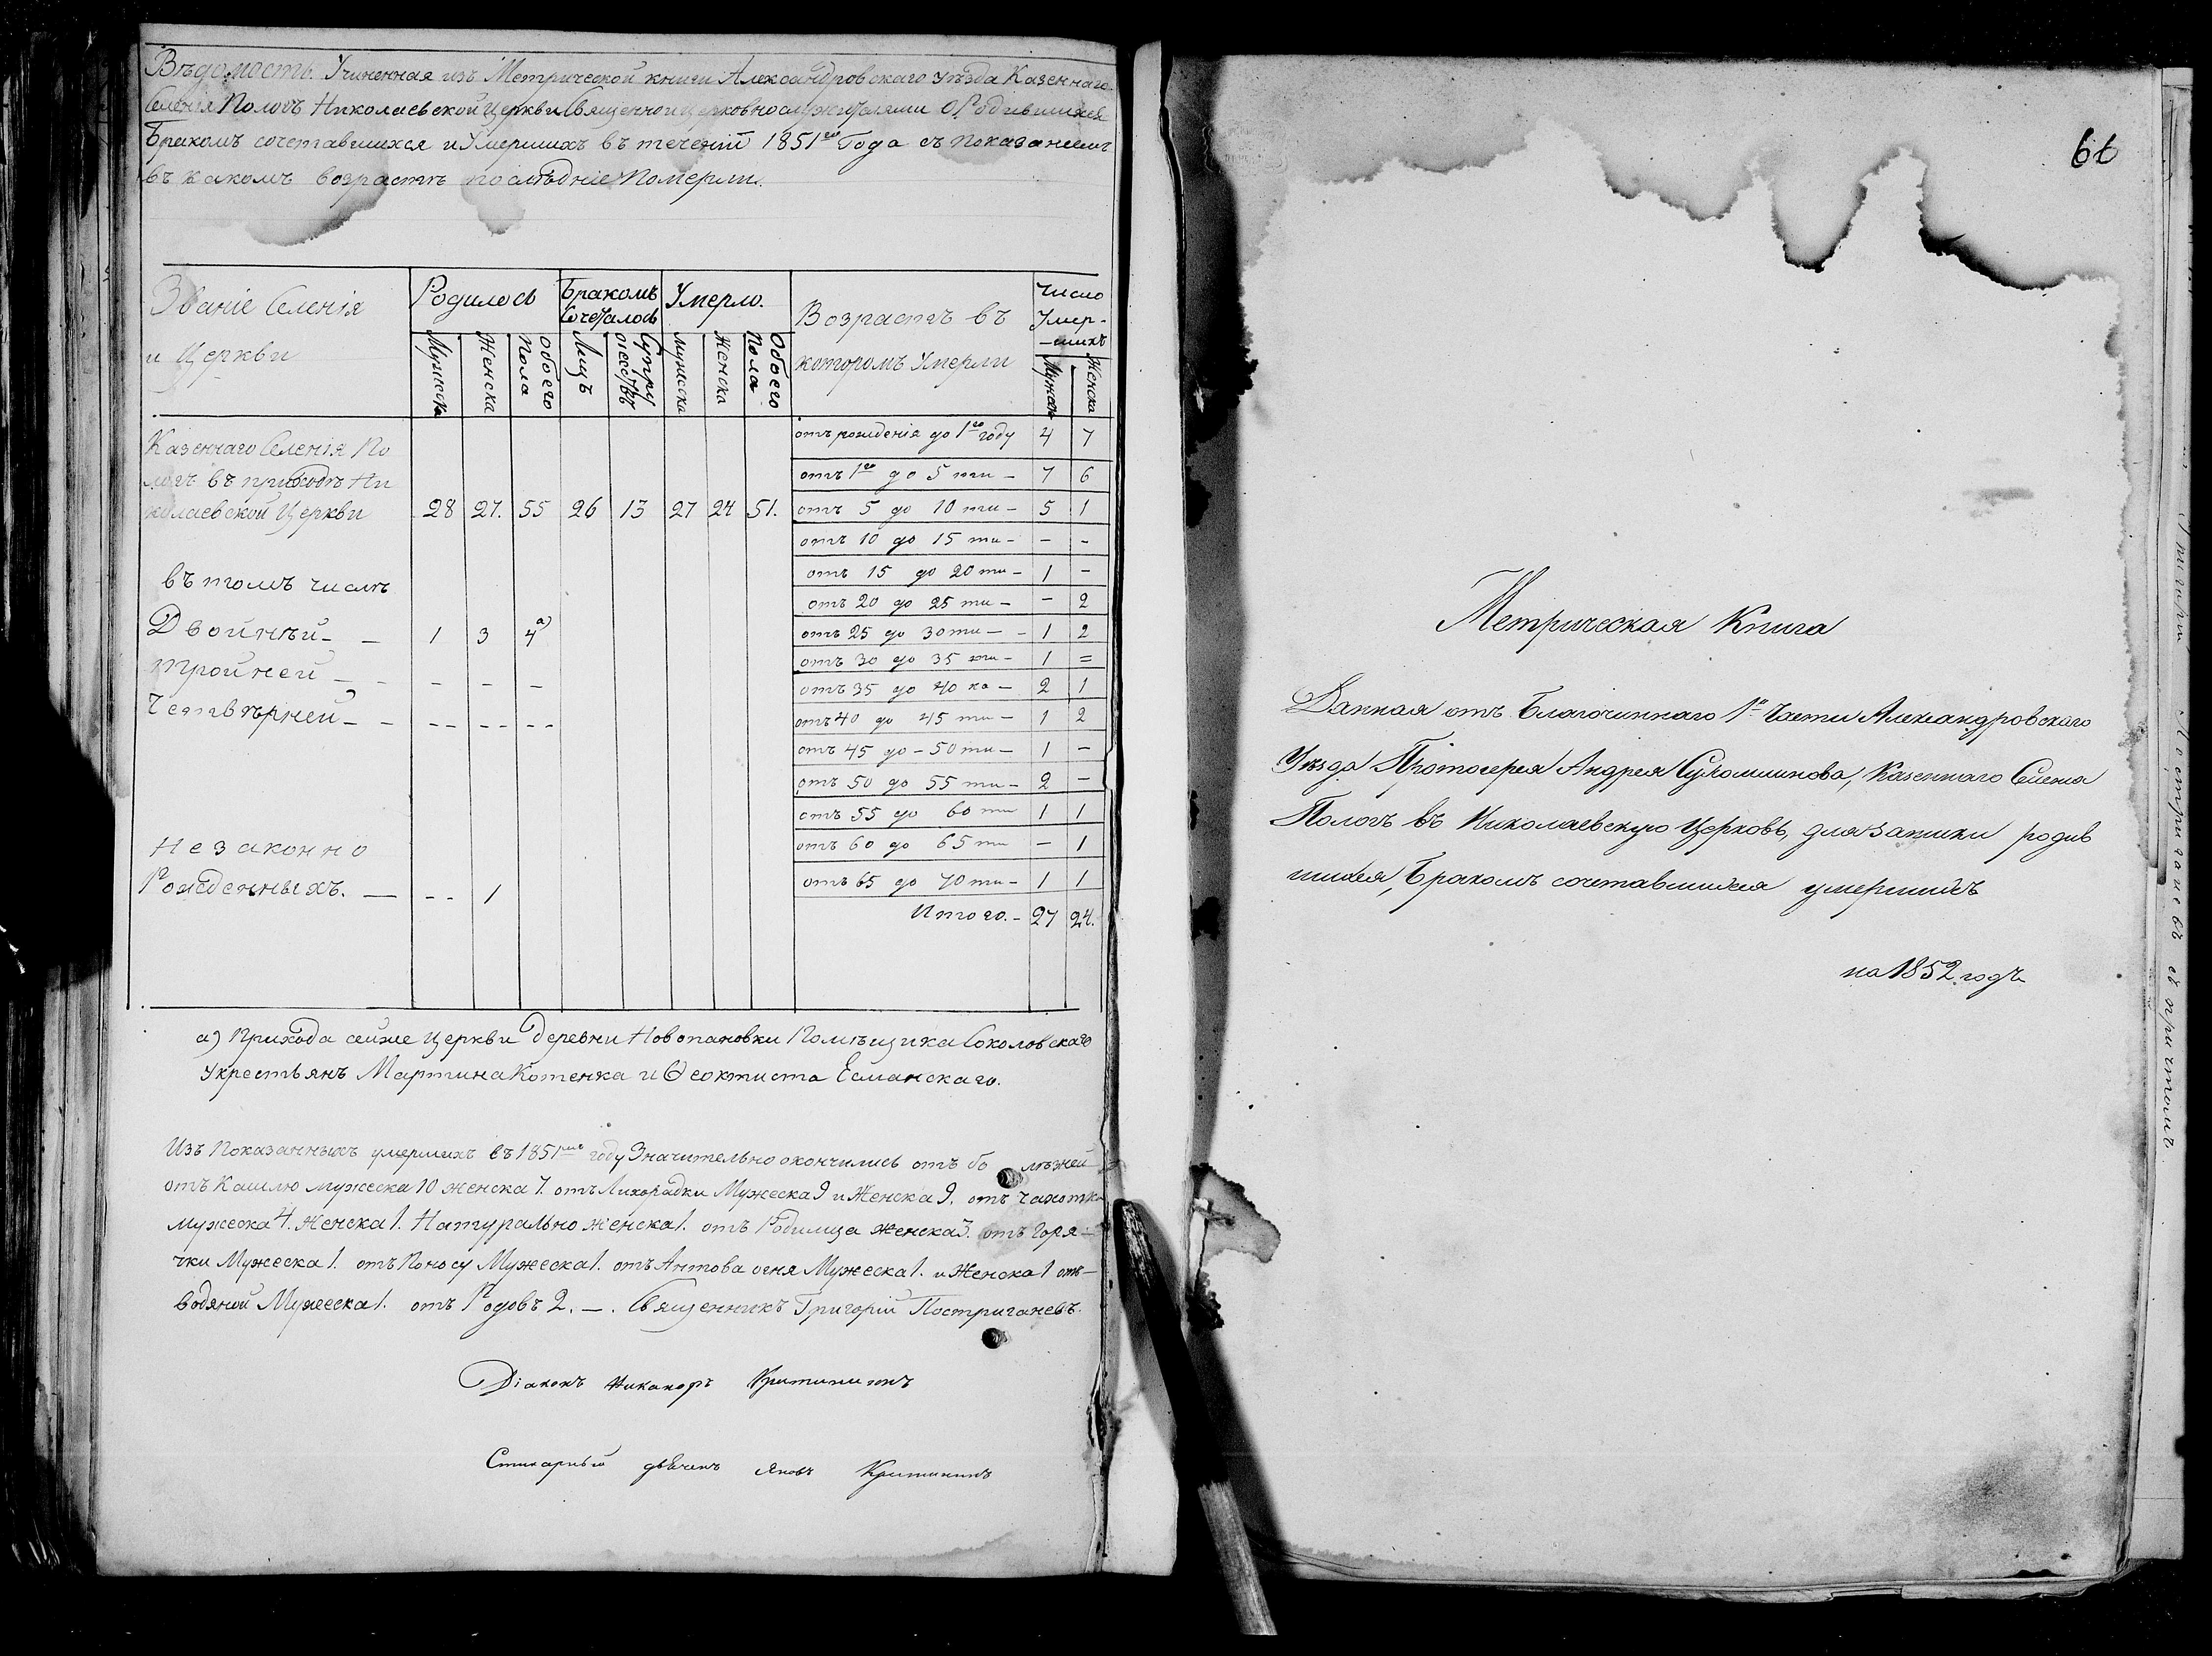 Вѣдомость Учиненная изъ Метрической книги Александровскаго уѣзда Казеннаго
Селенія Пологъ Николаевской Церкви Священно и церковнослужителями О Родившихся
Бракомъ сочетавшихся и Умершихъ въ теченіи 1851го Года съ показаніемъ
въ какомъ возрастѣ послѣдніе Померли.
Званіе Селенія и Церкви
Родилось
Бракомъ Сочеталось
Умерло.
Возрастъ въ которомъ Умерли
Число Умер-шихъ
Мужеска Женска Обоего Пола Лицъ Супружествъ Мужеска Женска Обоего Пола Мужеска Женска
Казеннаго Селенія По
логъ въ приходѣ Ни
колаевской Церкви 28 27. 55 26 13 27 24 51.
отъ рожденія до 1го году 4 7
отъ 1го до 5 ти - 7 6
отъ 5 до 10 ти - 5 1
отъ 10 до 15 ти - - -
отъ 15 до 20 ти - 1 -
отъ 20 до 25 ти - - 2
отъ 25 до 30 ти - - 1 2
отъ 30 до 35 ти - 1 =
отъ 35 до 40 ка - 2 1
отъ 40 до 45 ти - 1 2
отъ 45 до - 50 ти - 1 -
отъ 50 до 55 ти - 2 -
отъ 55 до 60 ти 1 1
отъ 60 до 65 ти - 1
отъ 65 до 70 ти - 1 1
Итого. - 27 24.
въ томъ числѣ
Двойнѣй - - 1 3 4 а)
Тройней - - - - -
Четвѣрней - - - - - - - -
Незаконно
Рожденныхъ. - - - 1
а) Прихода сейже Церкви Деревни Новопановки Помѣщика Соколовскаго
У крестьянъ Мартина Котенка и Ѳеоктиста Есманскаго.
Изъ Показанныхъ умершихъ въ 1851мъ году Значительно окончились отъ бо лѣзней
отъ Кашлю мужеска 10 женска 7. отъ Лихорадки Мужеска 9 и Женска 9. отъ Чахотки
мужеска 4. Женска 1. Натурально женска 1. отъ Родимца женска 3. отъ Горя-
чки Мужеска 1. отъ Поносу Мужеска 1. отъ Антова огня Мужеска 1. и Женска 1 отъ-
Водяной Мужеска 1. отъ Родовъ 2. -. Священникъ Григорій Постриганевъ.
Діаконъ Никаноръ
Стихарный дьячекъ Яковъ
61
Метрическая Книга
Данная отъ Благочиннаго 1й Части Александровскаго
Уѣзда Протоіерея Андрея Сухомлинова, Казеннаго Селенія
Пологъ въ Николаевскую Церковь, для записки родив
шихся, Бракомъ сочетавшихся умершихъ
на 1852 годъ
Постриганевъ съ причтомъ.